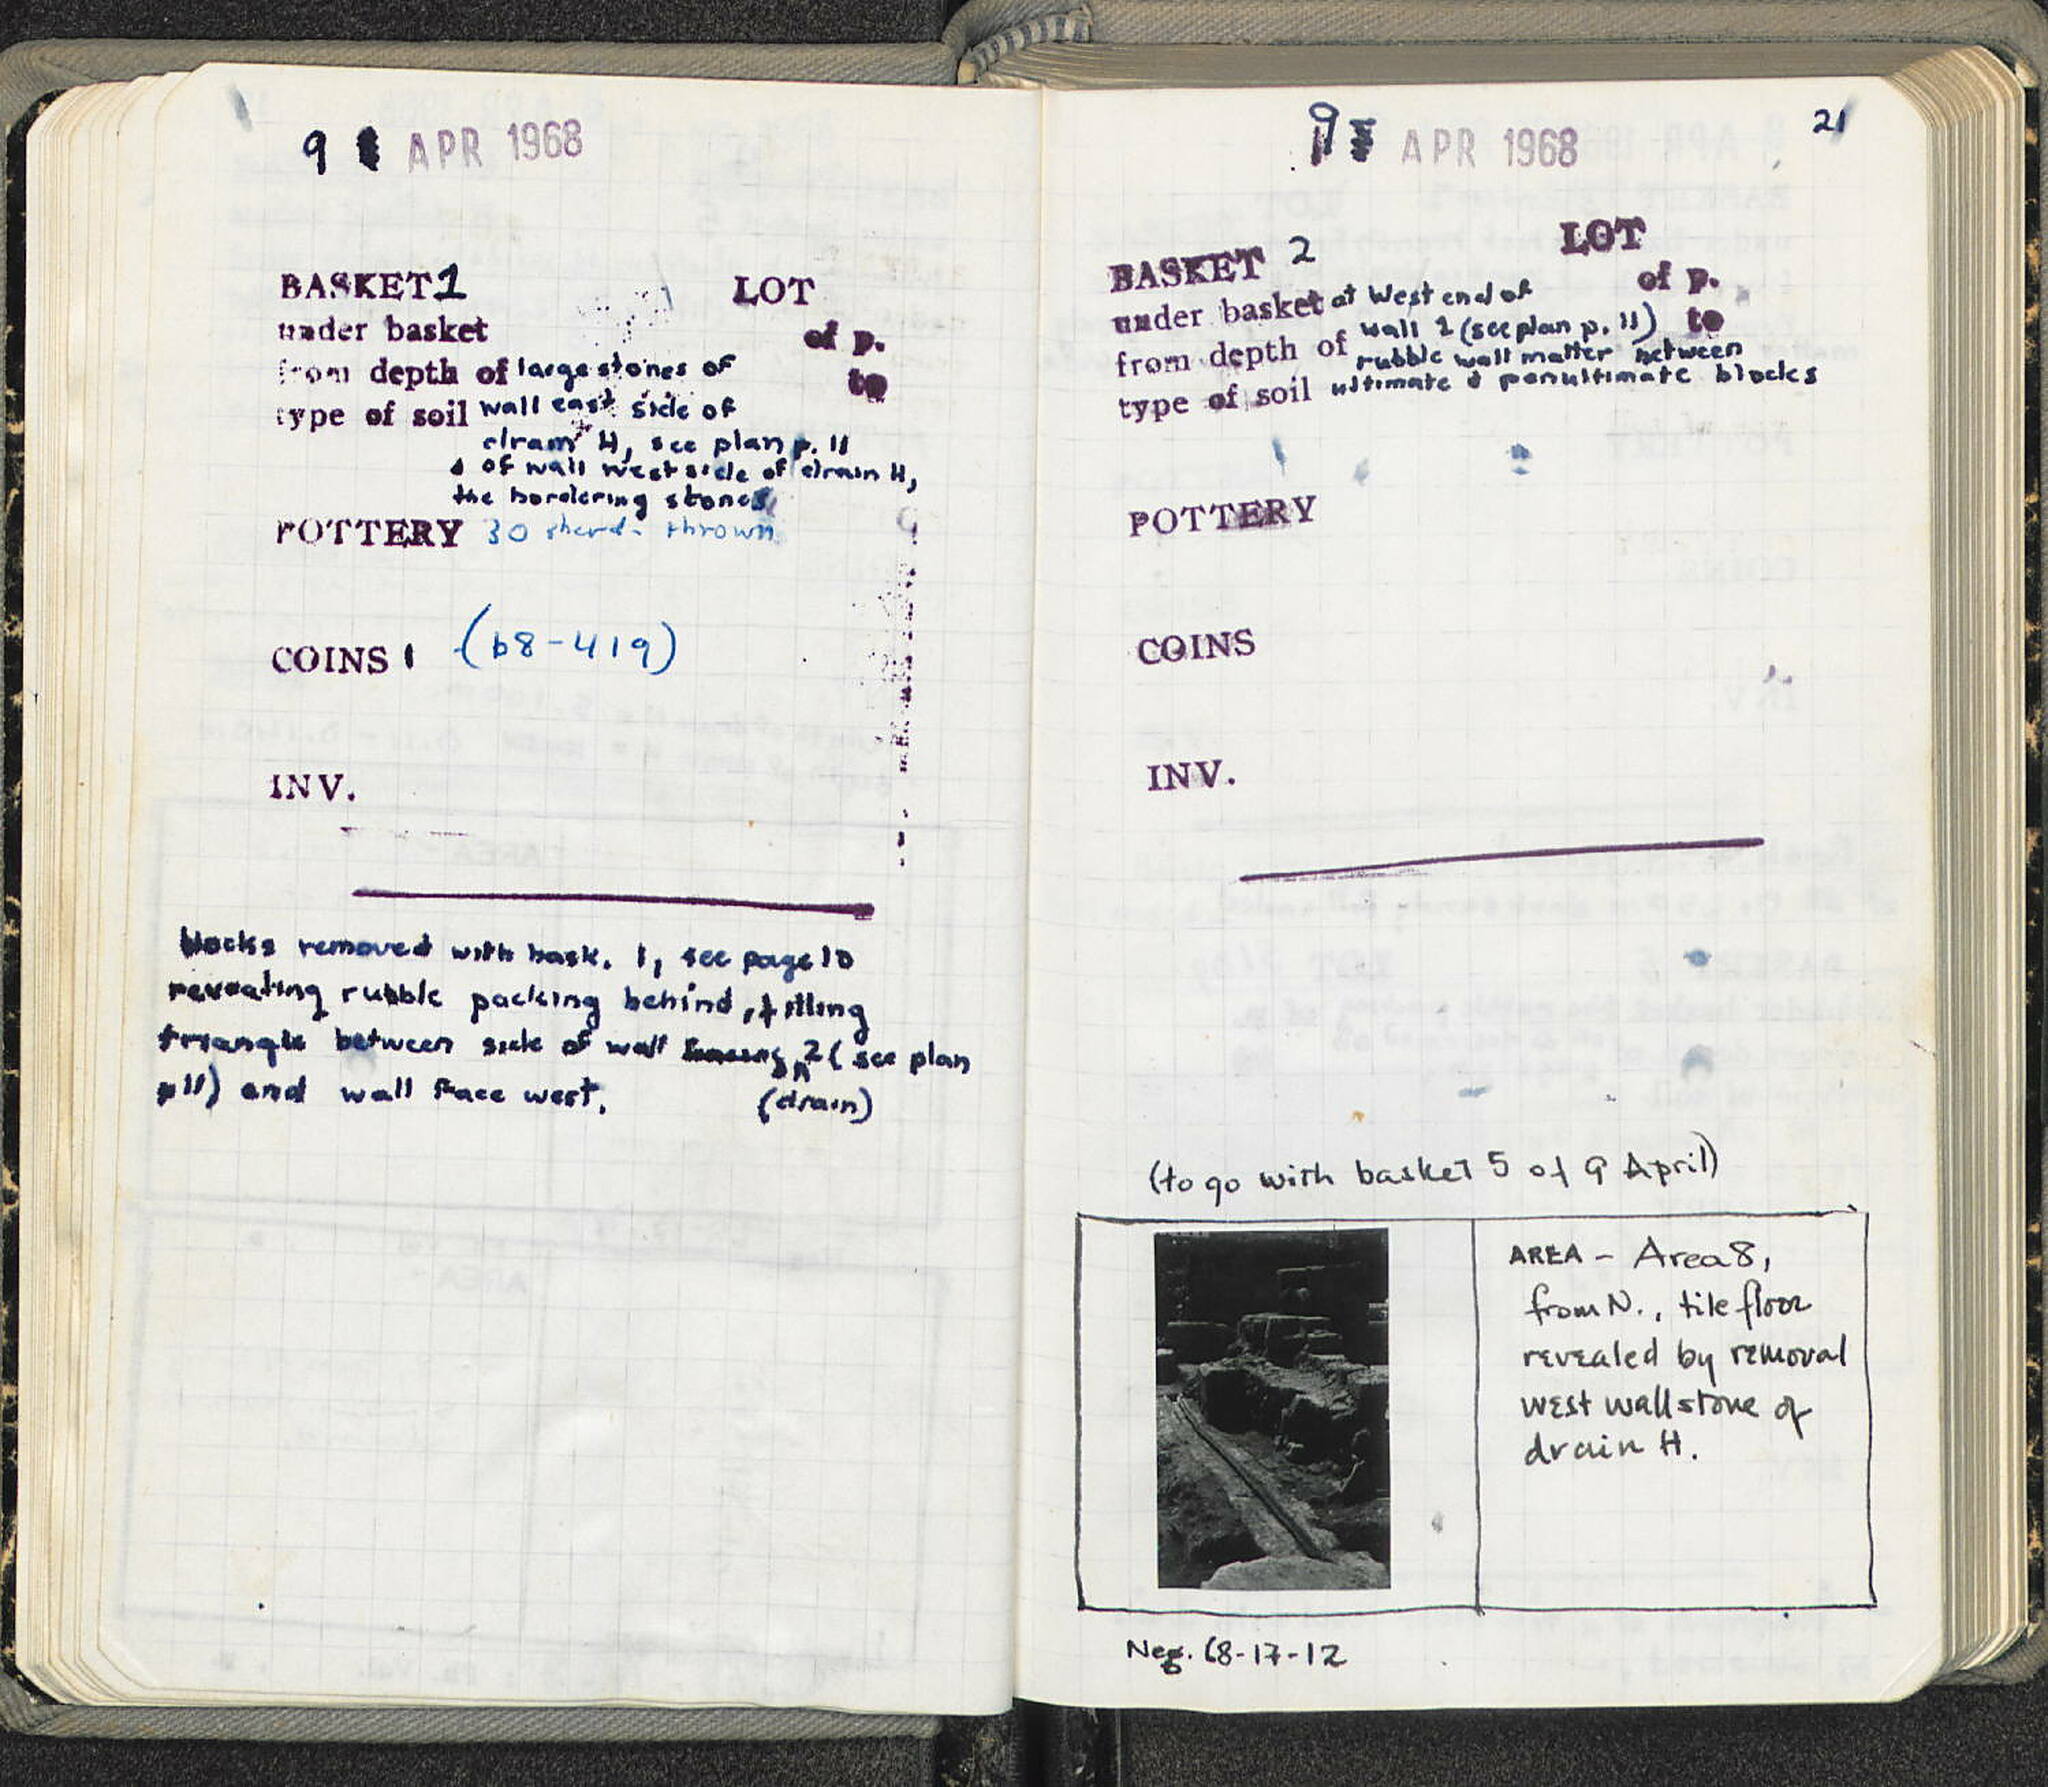 9 APR 1968
BASKET 1 LOT
under basket of p.
from depth of large stones of to
type of soil wall east side of
drain H, see plan p. 11
& of wall west side of drain H,
the bordering stones
POTTERY 30 sherds thrown
COINS 1 (68-419)
INV.
blocks removed with bask. 1, see page 10
revealing rubble packing behind, filling
triangle between side of wall 2 (see plan
p11) and wall face west. (drain)
9 APR 1968
21
BASKET 2 LOT
under basket at West end of of p.
from depth of wall 2 (see plan p. 11) to
rubble wall matter between
type of soil ultimate & penultimate blocks
POTTERY
COINS
INV.
(to go with basket 5 of 9 April)
AREA - Area 8,
from N., tile floor
revealed by removal
west wall stone of
drain H.
Neg. 68-17-12